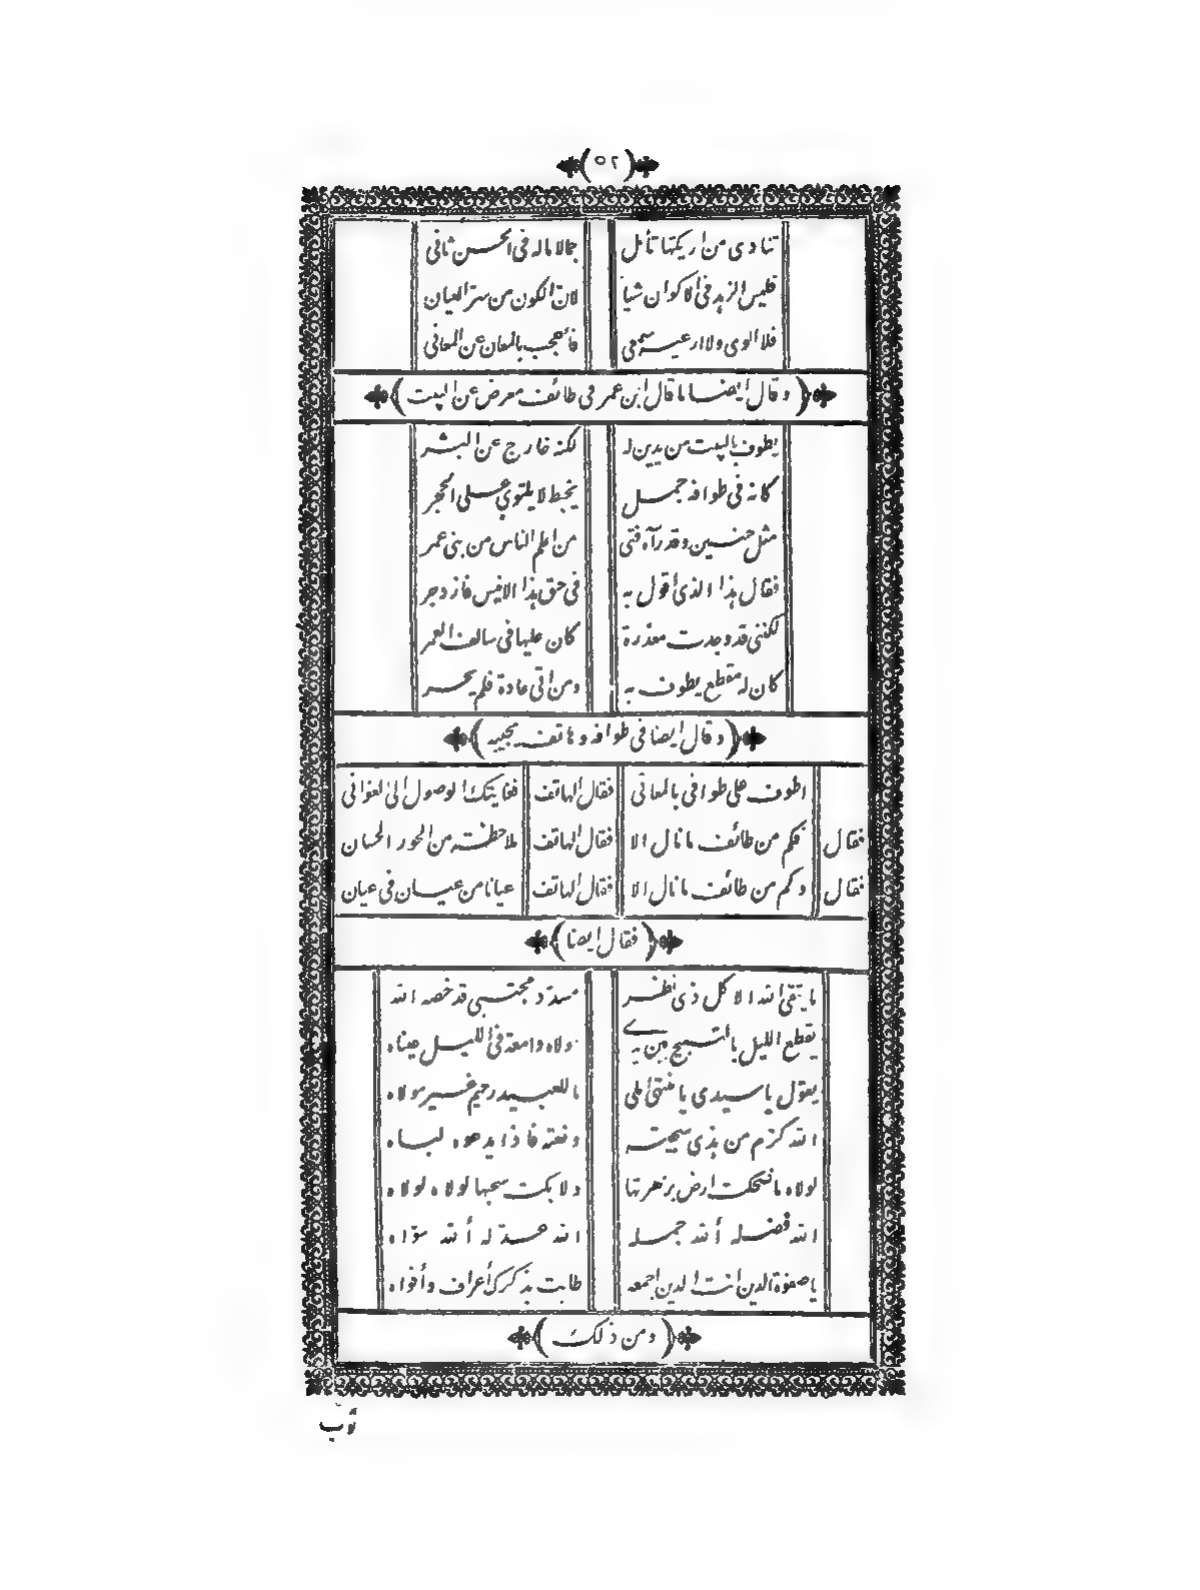 (٥٢)
تنادى من أريكتها تأمل جمالا ماله فى الحسن ثانى
فليس الزهد فى الاكوان شيأ لان الكون من سر العيان
فلا الوى ولا ارعيه سمعى فأعجب بالمعان عن المعانى
(وقال ايضا ما قال ابن عمر فى طائف معرض عن البيت)
يطوف بالبيت من يدين له لكنه خارج عن البشر
كانه فى طوافه جمل يخبط لا يلتوى على الحجر
مثل حنين وقد رآه فتى من اعلم الناس من بنى عمر
فقال هذا الذى أقول به فى حق هذا الانيس فازدجر
لكننى قد وجدت معذرة كان عليها فى سالف العمر
كان له مقطع يطوف به ومن أتى عادة فلم يحر
(وقال ايضا فى طوافه وهاتف يجيبه)
اطوف على طوافى بالمعانى فقال الهاتف فغايتك الوصول الى الغوانى
فقال فكم من طائف ما نال الا فقال الهاتف ملاحظة من الحور الحسان
فقال وكم من طائف ما نال الا فقال الهاتف عيانا من عيان فى عيان
(فقال ايضا)
ما يتقى الله الا كل ذى نظر مسدد مجتبى قد خصه الله
يقطع الليل بالتسبيح بين يديه ولاه دامعة فى الليل عيناه
يقول يا سيدى يا منتهى املى ما للعبيد رحيم غير مولاه
الله كرم من هذى سجيته ونعته فاذا يدعوه لباه
لولاه ما ضحكت ارض بزهرتها ولا بكت سحبها لولاه لولاه
الله فضله ألله جمله الله عدله ألله سواه
يا صفوة الدين أنت الدين اجمعه طابت بذكرك أعراف وأفواه
(ومن ذلك)
ثوب